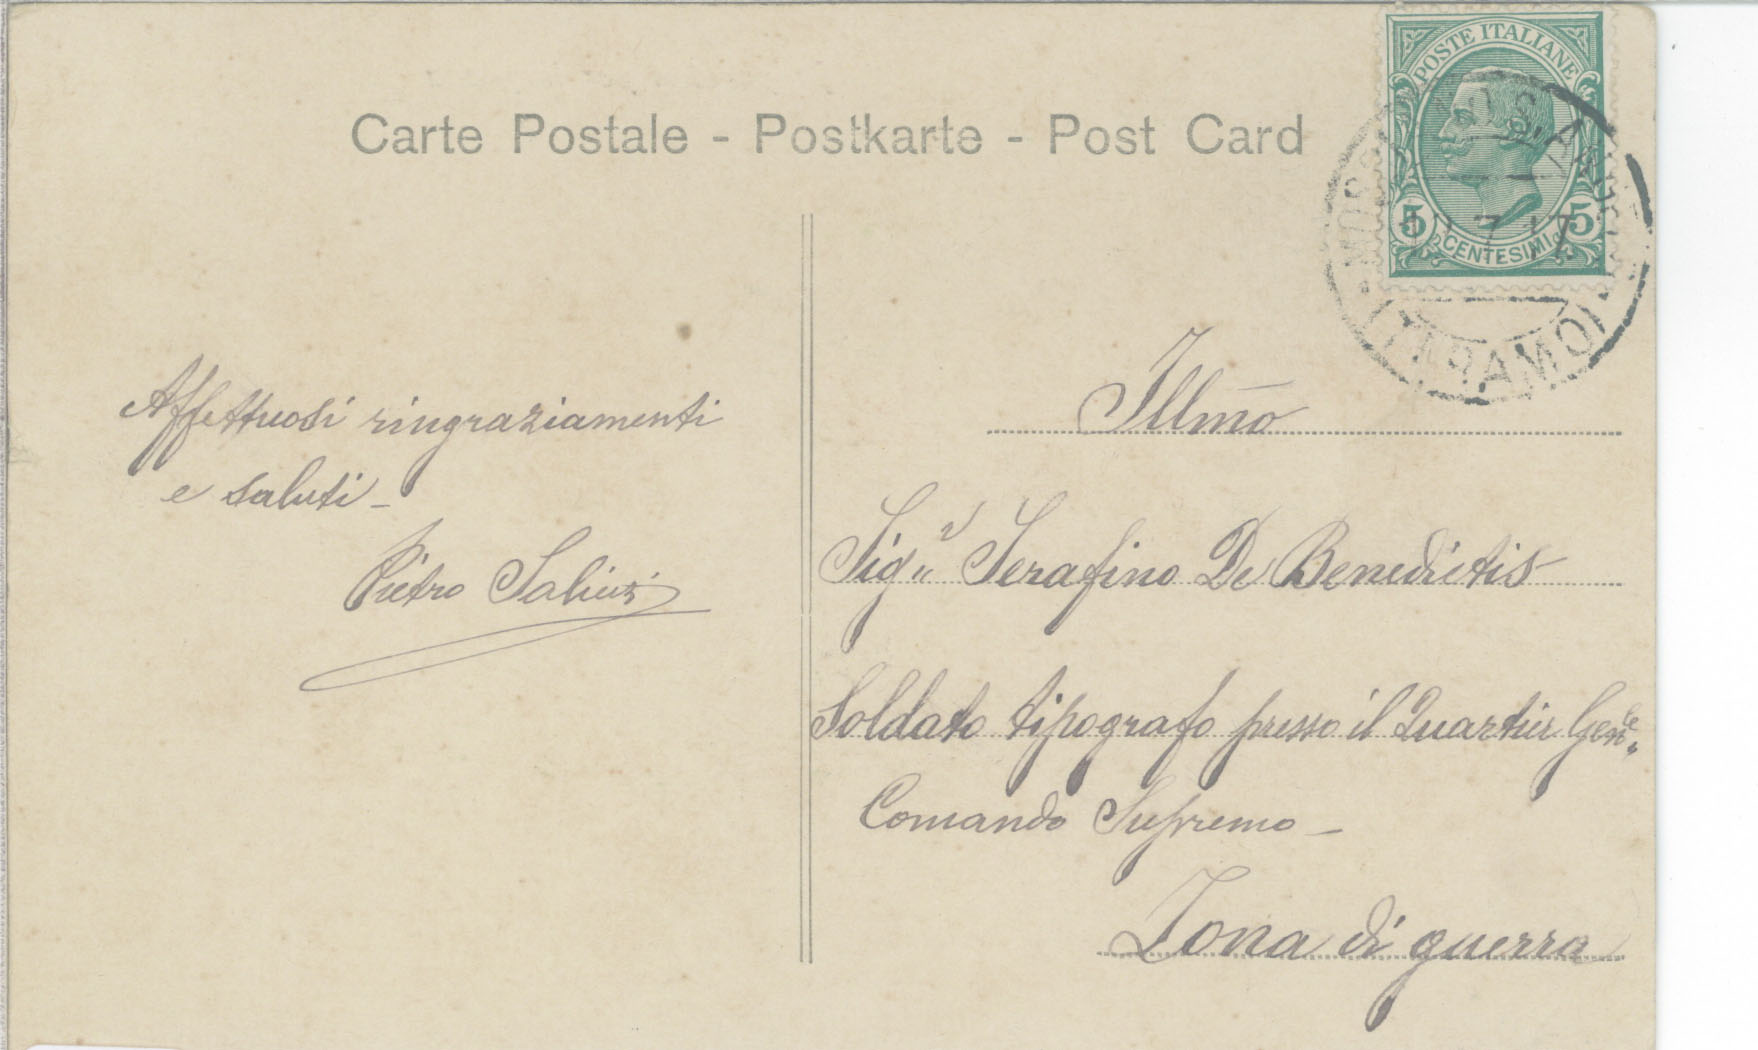 Carte Postale - Postkarte - Post Card
POSTE ITALIANE
5 5
CENTESIMI
(TERAMO)
Affettuosi ringraziamenti
e saluti -
Pietro
Illmo
Sigr Serafino De Benedictis
Soldato tipografo presso il Quartier Genle
Comando Supremo -
Zona di guerra